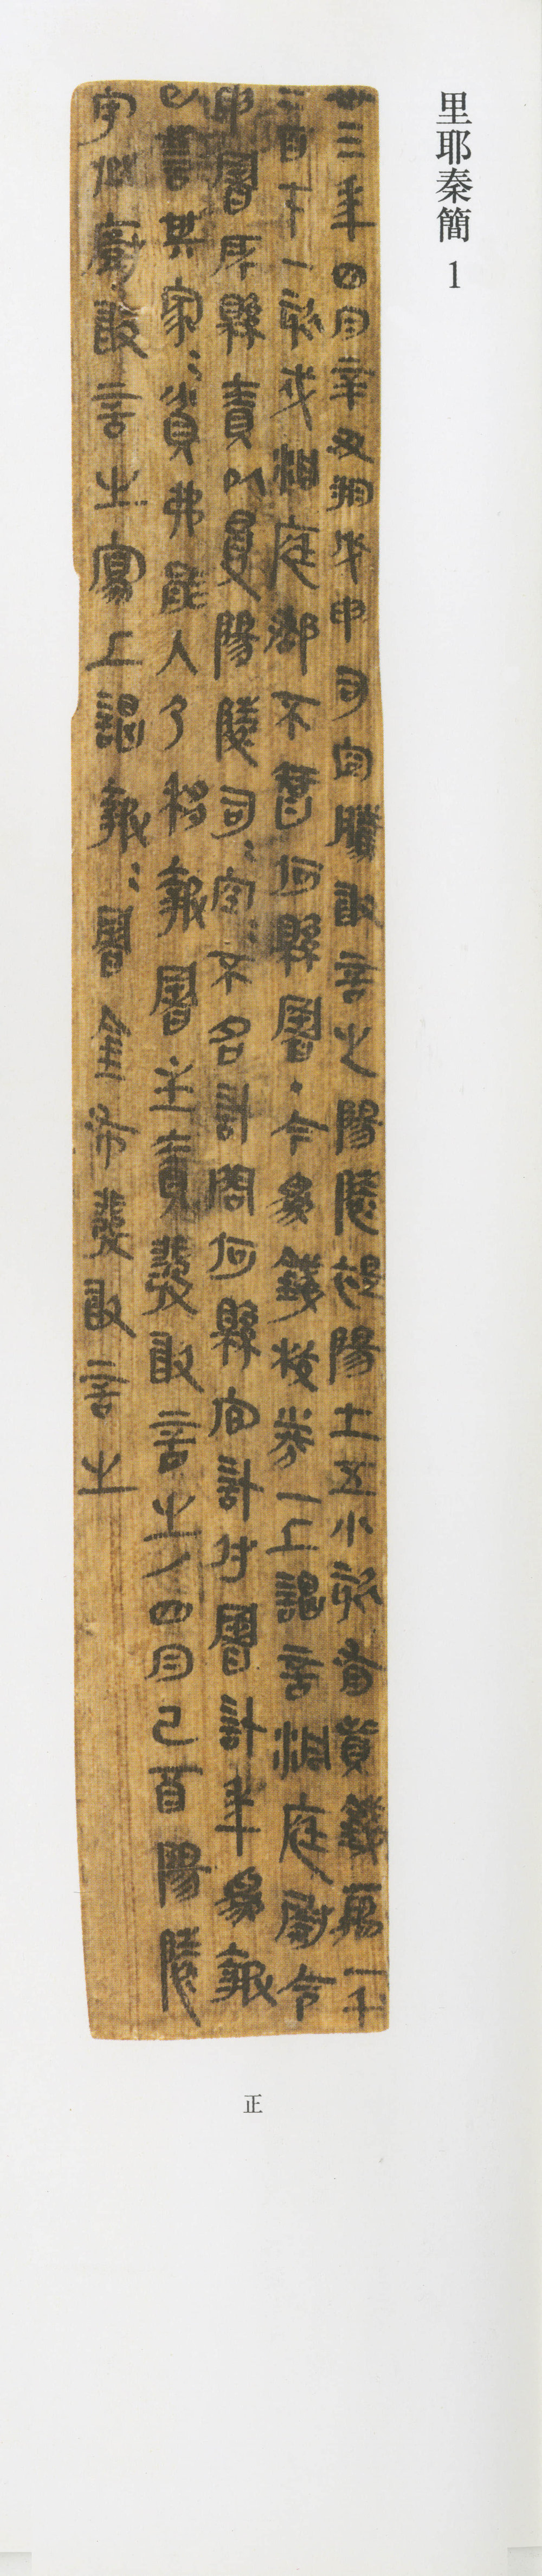 里耶秦簡 1
卅三年四月辛丑朔戊申司空騰敢言之陽陵褆陽士五小欬有貲錢萬一千
二百七十一欬戍洞庭郡不智何縣署·今為錢校券一上謁言洞庭尉令
申署所縣責以受陽陵司=空=不名計問何縣官計付署計年為報
已訾其家=貧弗能入乃移報署主責發敢言之/四月己酉陽陵
守丞廚敢言之寫上謁報=署金布發敢言之
正